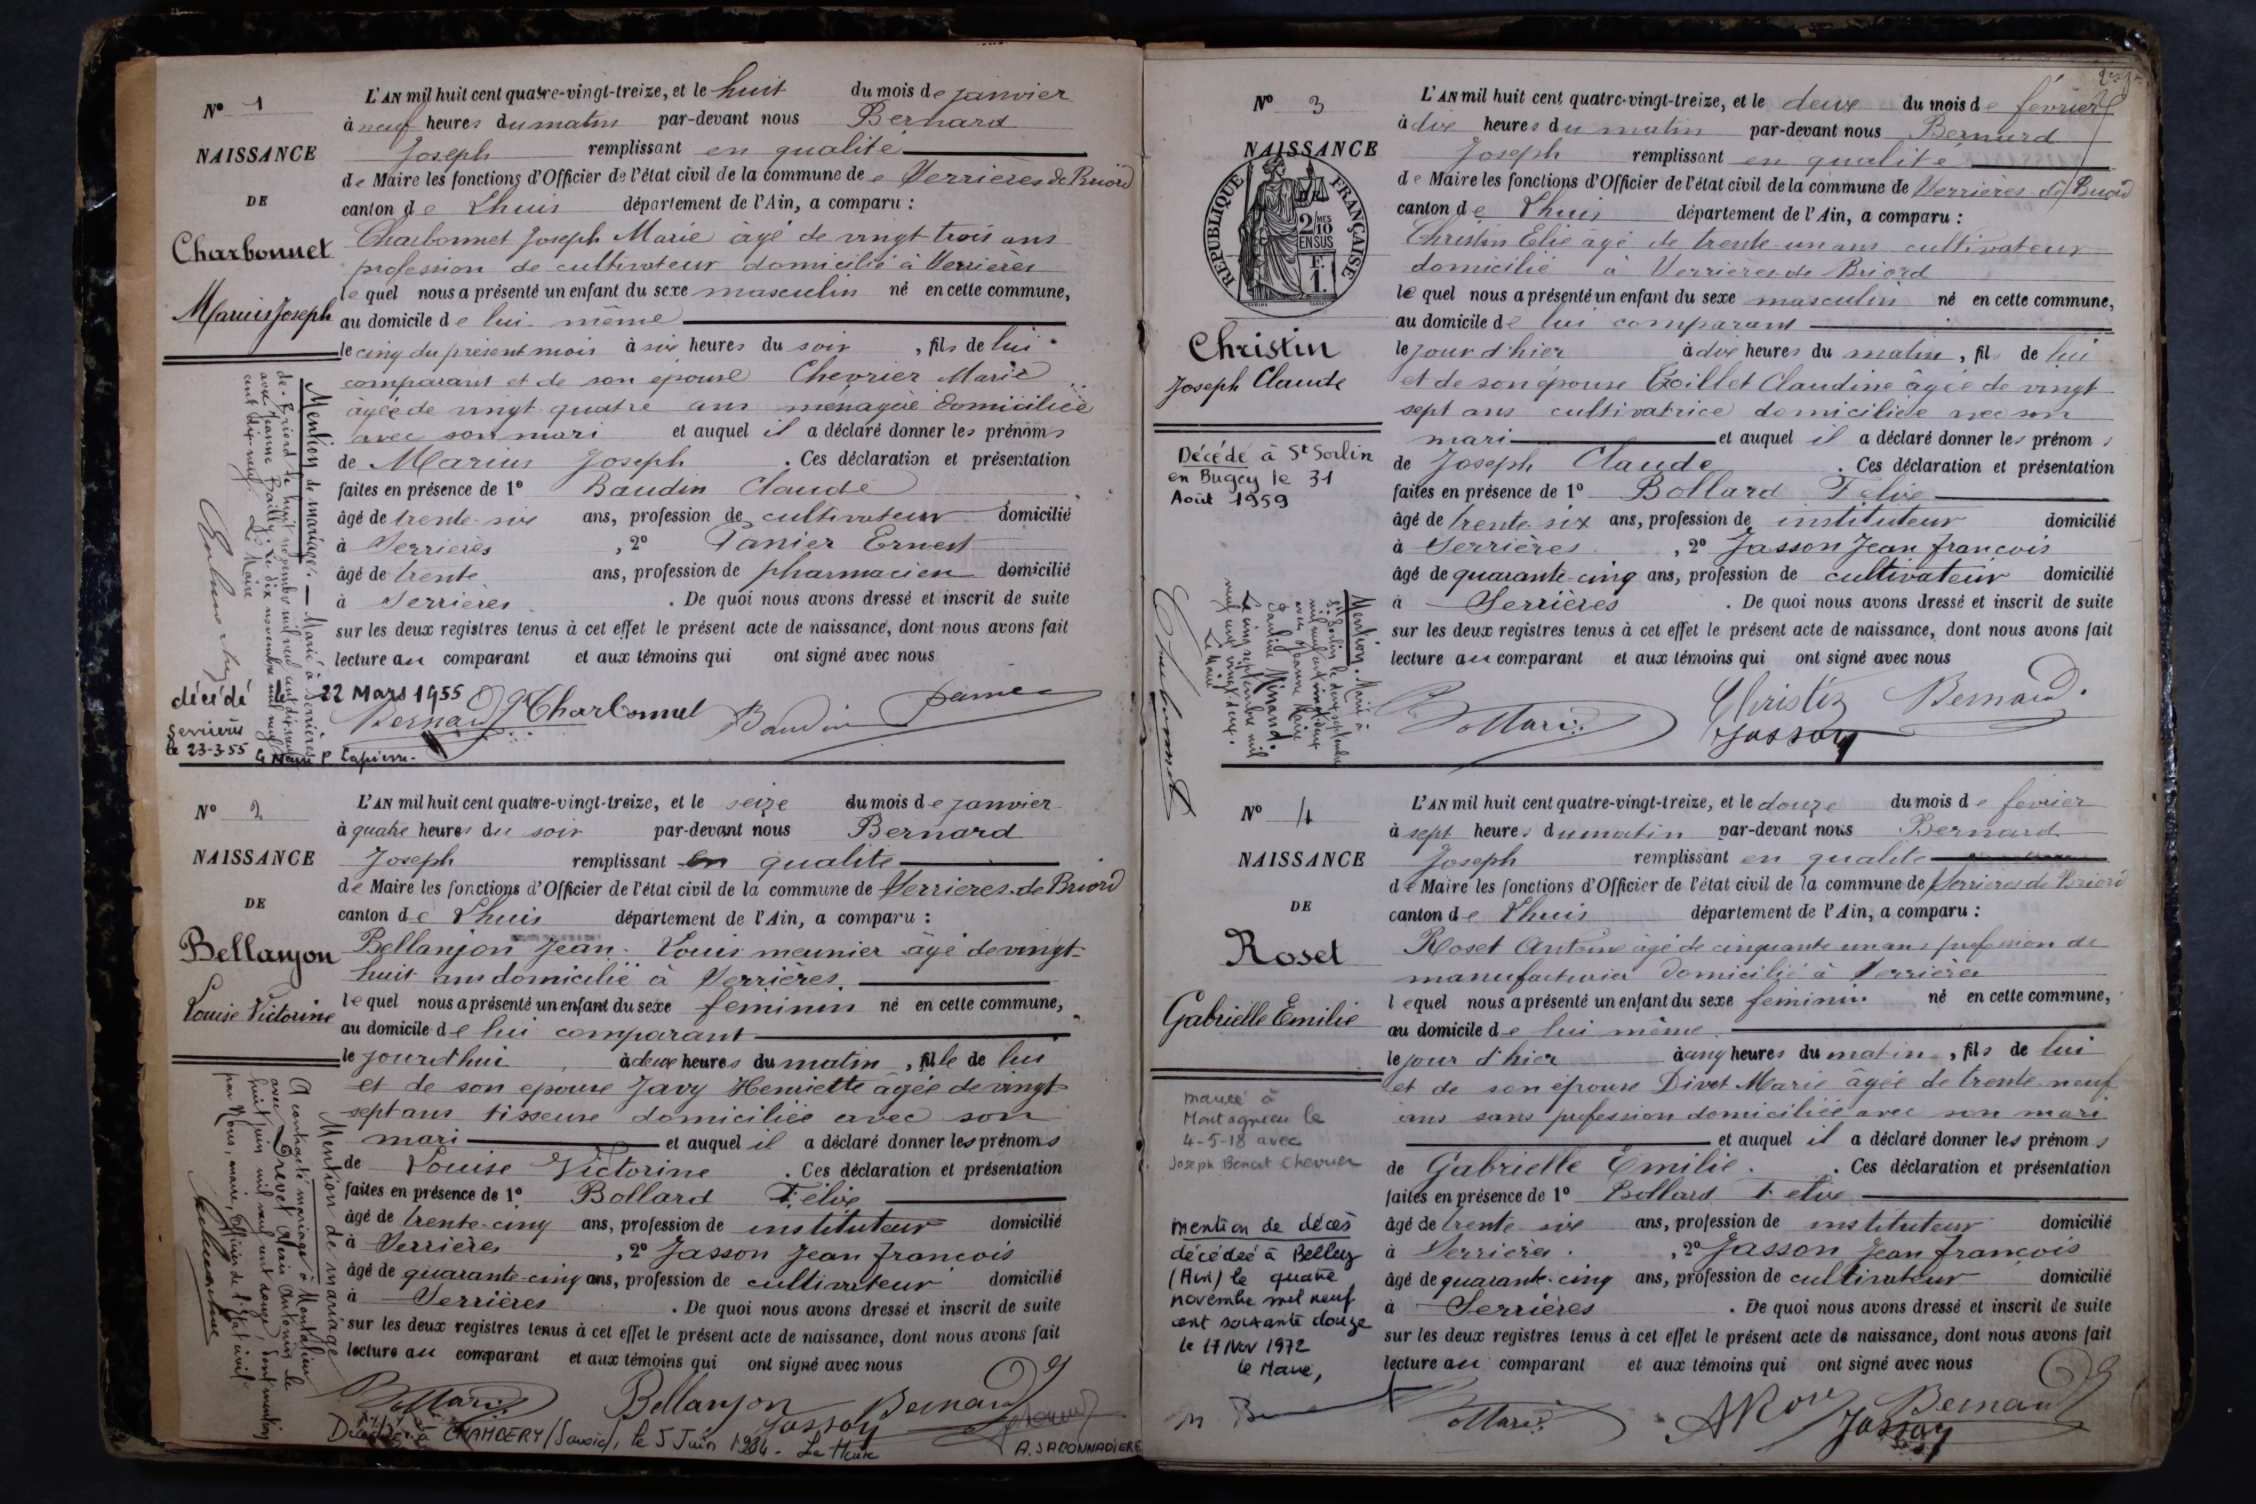 N° 1
NAISSANCE
DE
Charbonnet
Marius Joseph
L'AN mil huit cent quatre-vingt-treize, et le huit du mois de janvier
à neuf heures du matin par-devant nous Bernard
Joseph remplissant en qualité
de Maire les fonctions d'Officier de l'état civil de la commune de Serrières de Briord
canton de Lhuis département de l'Ain, a comparu :
Charbonnet Joseph Marie âgé de vingt trois ans
profession de cultivateur domicilié à Serrières
le quel nous a présenté un enfant du sexe masculin né en cette commune,
au domicile de lui même
le cinq du présent mois à six heures du soir, fils de lui
comparant et de son épouse Chevrier Marie
âgée de vingt quatre ans ménagère domiciliée
avec son mari et auquel il a déclaré donner les prénoms
de Marius Joseph. Ces déclaration et présentation
faites en présence de 1° Baudin Claude
âgé de trente-six ans, profession de cultivateur domicilié
à Serrières, 2° Panier Ernest
âgé de trente ans, profession de pharmacien domicilié
à Serrières. De quoi nous avons dressé et inscrit de suite
sur les deux registres tenus à cet effet le présent acte de naissance, dont nous avons fait
lecture au comparant et aux témoins qui ont signé avec nous
Bernard Charbonnet Baudin Panier
Mention de mariage. — Marié à Serrières
de Briord le huit novembre mil neuf cent dix neuf
avec Jeanne Bailly. Le dix novembre mil neuf
cent dix-neuf. Le Maire
décédé le 22 Mars 1955
Serrières
le 23-3-55 Le Maire
N° 2
NAISSANCE
DE
Bellanjon
Louise Victorine
L'AN mil huit cent quatre-vingt-treize, et le seize du mois de janvier
à quatre heures du soir par-devant nous Bernard
Joseph remplissant en qualité
de Maire les fonctions d'Officier de l'état civil de la commune de Serrières-de-Briord
canton de Lhuis département de l'Ain, a comparu :
Bellanjon Jean-Louis meunier âgé de vingt-
huit ans domicilié à Serrières.
le quel nous a présenté un enfant du sexe féminin né en cette commune,
au domicile de lui comparant
le jourd'hui à deux heures du matin, fille de lui
et de son épouse Javy Henriette âgée de vingt
sept ans tisseuse domiciliée avec son
mari et auquel il a déclaré donner les prénoms
de Louise Victorine. Ces déclaration et présentation
faites en présence de 1° Bollard Félix
âgé de trente-cinq ans, profession de instituteur domicilié
à Serrières, 2° Jasson Jean françois
âgé de quarante-cinq ans, profession de cultivateur domicilié
à Serrières. De quoi nous avons dressé et inscrit de suite
sur les deux registres tenus à cet effet le présent acte de naissance, dont nous avons fait
lecture au comparant et aux témoins qui ont signé avec nous
Bollard Bellanjon Jasson Bernard
Mention de mariage
A contracté mariage à Montalieu
avec Trevet Alexis Antonin le
huit juin mil neuf cent douze, dont mention
par Nous, maire, officier de l'état civil.
Décédée à CHAMBERY (Savoie), le 5 Juin 1984. Le Maire
A. SABONNADIERE
N° 3
NAISSANCE
RÉPUBLIQUE FRANÇAISE
2/10 MES
EN SUS
F.
1.
Christin
Joseph Claude
L'AN mil huit cent quatre-vingt-treize, et le deux du mois de février
à dix heures du matin par-devant nous Bernard
Joseph remplissant en qualité
de Maire les fonctions d'Officier de l'état civil de la commune de Serrières-de-Briord
canton de Lhuis département de l'Ain, a comparu :
Christin Elie âgé de trente-un ans cultivateur
domicilié à Serrières de Briord
le quel nous a présenté un enfant du sexe masculin né en cette commune,
au domicile de lui comparant
le jour d'hier à dix heures du matin, fils de lui
et de son épouse Claudine âgée de vingt
sept ans cultivatrice domiciliée avec son
mari et auquel il a déclaré donner les prénoms
de Joseph Claude. Ces déclaration et présentation
faites en présence de 1° Bollard Félix
âgé de trente-six ans, profession de instituteur domicilié
à Serrières, 2° Jasson Jean françois
âgé de quarante-cinq ans, profession de cultivateur domicilié
à Serrières. De quoi nous avons dressé et inscrit de suite
sur les deux registres tenus à cet effet le présent acte de naissance, dont nous avons fait
lecture au comparant et aux témoins qui ont signé avec nous
Bollard Christin Bernard
Jasson
Décédé à St Sorlin
en Bugey le 31
Août 1959
Mention. Marié à
St Sorlin le deux septembre
mil neuf cent vingt deux
avec Jeanne Marie
Pauline Minand.
Le cinq septembre mil
neuf cent vingt deux.
Le Maire
Charbonnet
N° 4
NAISSANCE
DE
Roset
Gabrielle Emilie
L'AN mil huit cent quatre-vingt-treize, et le douze du mois de février
à sept heures du matin par-devant nous Bernard
Joseph remplissant en qualité
de Maire les fonctions d'Officier de l'état civil de la commune de Serrières de Briord
canton de Lhuis département de l'Ain, a comparu :
Roset Antoine âgé de cinquante un ans profession de
manufacturier domicilié à Serrières
lequel nous a présenté un enfant du sexe féminin né en cette commune,
au domicile de lui même
le jour d'hier à cinq heures du matin, fils de lui
et de son épouse Divet Marie âgée de trente-neuf
ans sans profession domiciliée avec son mari
et auquel il a déclaré donner les prénoms
de Gabrielle Emilie. Ces déclaration et présentation
faites en présence de 1° Bollard Félix
âgé de trente-six ans, profession de instituteur domicilié
à Serrières, 2° Jasson Jean françois
âgé de quarante-cinq ans, profession de cultivateur domicilié
à Serrières. De quoi nous avons dressé et inscrit de suite
sur les deux registres tenus à cet effet le présent acte de naissance, dont nous avons fait
lecture au comparant et aux témoins qui ont signé avec nous
Bollard Bernard
Jasson
mariée à
Montagnieu le
4-5-18 avec
Joseph Benoit Chevrier
mention de décès
décédée à Belley
(Ain) le quatre
novembre mil neuf
cent soixante douze
le 17 Nov 1972
Le Maire,